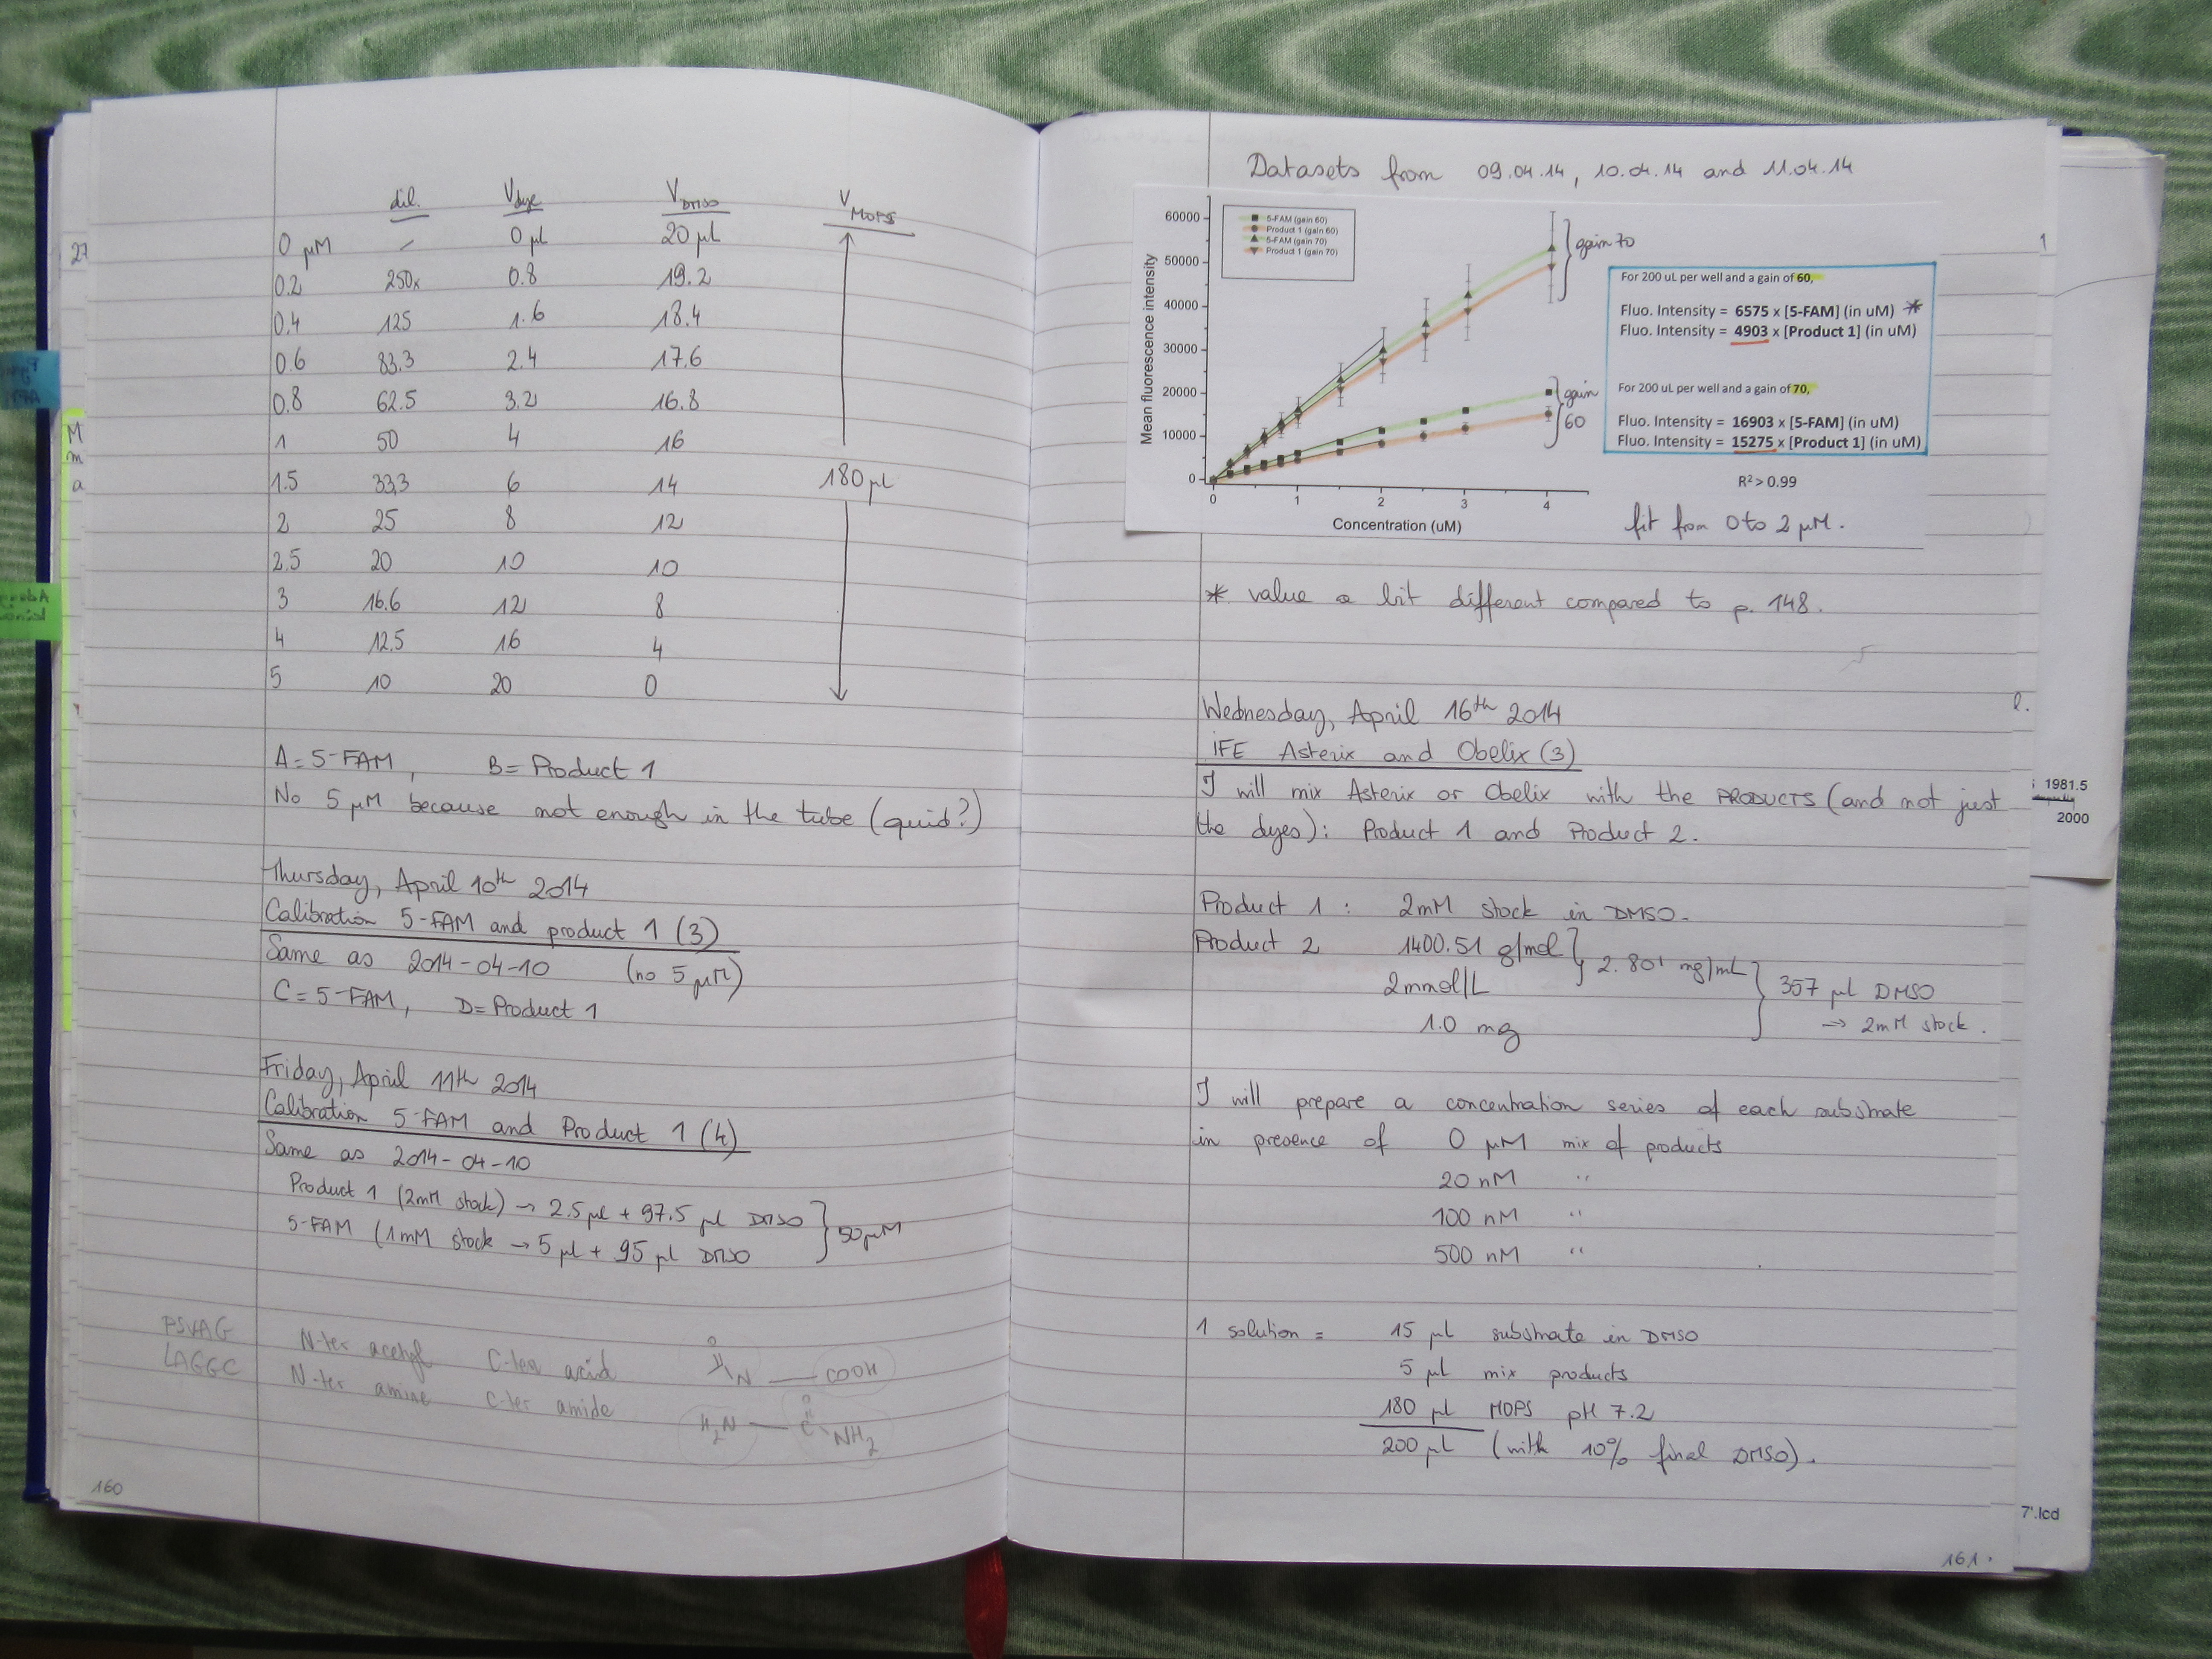 dil. Vdye VDMSO VMOPS
0 µM - 0 µl 20 µl
0.2 250x 0.8 19.2
0.4 125 1.6 18.4
0.6 83.3 2.4 17.6
0.8 62.5 3.2 16.8
1 50 4 16
1.5 33.3 6 14 180 µl
2 25 8 12
2.5 20 10 10
3 16.6 12 8
4 12.5 16 4
5 10 20 0
A = 5-FAM, B = Product 1
No 5 µM because not enough in the tube (quid?)
Thursday, April 10th 2014
Calibration 5-FAM and product 1 (3)
Same as 2014-04-10 (no 5 µM)
C = 5-FAM, D = Product 1
Friday, April 11th 2014
Calibration 5-FAM and Product 1 (4)
Same as 2014-04-10
Product 1 (2mM stock) → 2.5 µl + 97.5 µl DMSO
5-FAM (1mM stock → 5 µl + 95 µl DMSO
50 µM
PSVAG N-ter acetyl C-ter acid O N COOH
LAGGC N-ter amine C-ter amide H2N O C NH2
160
27
M
m
a
Datasets from 09.04.14, 10.04.14 and 11.04.14
Mean fluorescence intensity
60000
50000
40000
30000
20000
10000
0
0 1 2 3 4
Concentration (uM)
5-FAM (gain 60)
Product 1 (gain 60)
5-FAM (gain 70)
Product 1 (gain 70)
gain 70
gain 60
For 200 uL per well and a gain of 60,
Fluo. Intensity = 6575 x [5-FAM] (in uM) *
Fluo. Intensity = 4903 x [Product 1] (in uM)
For 200 uL per well and a gain of 70,
Fluo. Intensity = 16903 x [5-FAM] (in uM)
Fluo. Intensity = 15275 x [Product 1] (in uM)
R² > 0.99
fit from 0 to 2 µM.
* value a bit different compared to p. 148.
Wednesday, April 16th 2014
IFE Asterix and Obelix (3)
I will mix Asterix or Obelix with the PRODUCTS (and not just
the dyes): Product 1 and Product 2.
Product 1 : 2mM stock in DMSO.
Product 2 1400.51 g/mol
2mmol/L
2.801 mg/mL
1.0 mg
357 µl DMSO
→ 2mM stock.
I will prepare a concentration series of each substrate
in presence of 0 µM mix of products
20 nM "
100 nM "
500 nM "
1 solution = 15 µl substrate in DMSO
5 µl mix products
180 µl MOPS pH 7.2
200 µl (with 10% final DMSO).
161.
1981.5
2000
7'.lcd